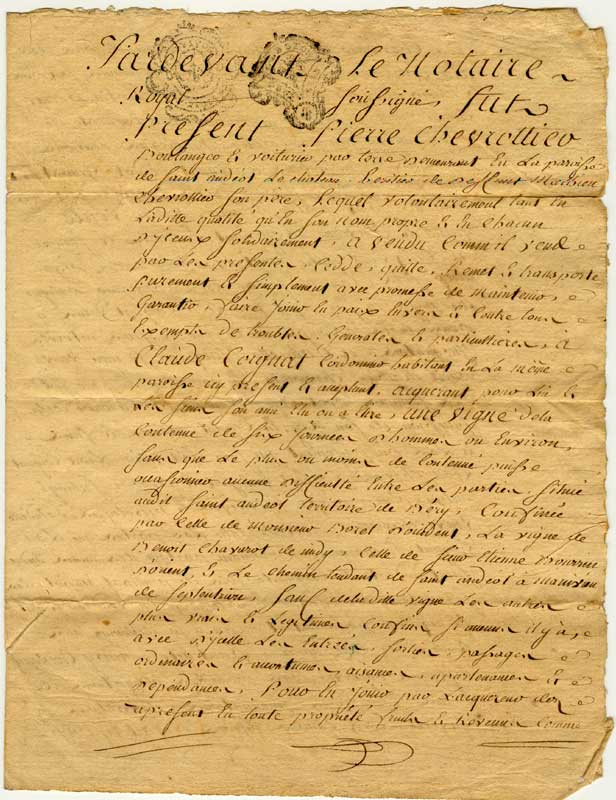 Pardevant Le Notaire
Royal soussigné, fut
Présent Pierre Chevrottier
Boulanger & voiturier par terre demeurant En La paroisse
de saint andeol Le chateau heritier de deffunt
chevrottier son pere, Lequel volontairement tant En
Laditte qualité qu'En son nom propre & En chacun
d'yceux solidairement, a vendu comm'il vend
par Les presentes, cedde, quitte, Remet & transporte
purement & simplement avec promesse de maintenir,
Garantir, faire jouir En paix Envers & Contre tous
Exempte de troubles Generales & particullieres, à
Claude Coignat Cordonnier habitant En La même
paroisse icy present & acceptant, acquerant pour Lui &
Les siens son ami Elu ou a Elire, une vigne de la
Contenue de six journées d'hommes ou Environ,
sans que Le plus ou moins de Contenue puisse
occasionner aucune difficulté Entre Les parties, située
audit saint andeol territoire de Béry, Confinée
par celle de monsieur Boret d'occident, La vigne de
Benoit Chavurot de midy, Celle de sieur Etienne
d'orient, & Le chemin tendant de saint andeol à
de septentrion, sauf de laditte vigne Les autres
plus vrais & Legitimes Confins si aucuns il y a,
avec d'ycelle Les Entrées, sorties, passages
ordinaires & accoutumés, aisances, apartenances &
dependances, Pour En jouir par L'acquereur des
apresent En toute propriété fruits & Revenus comme